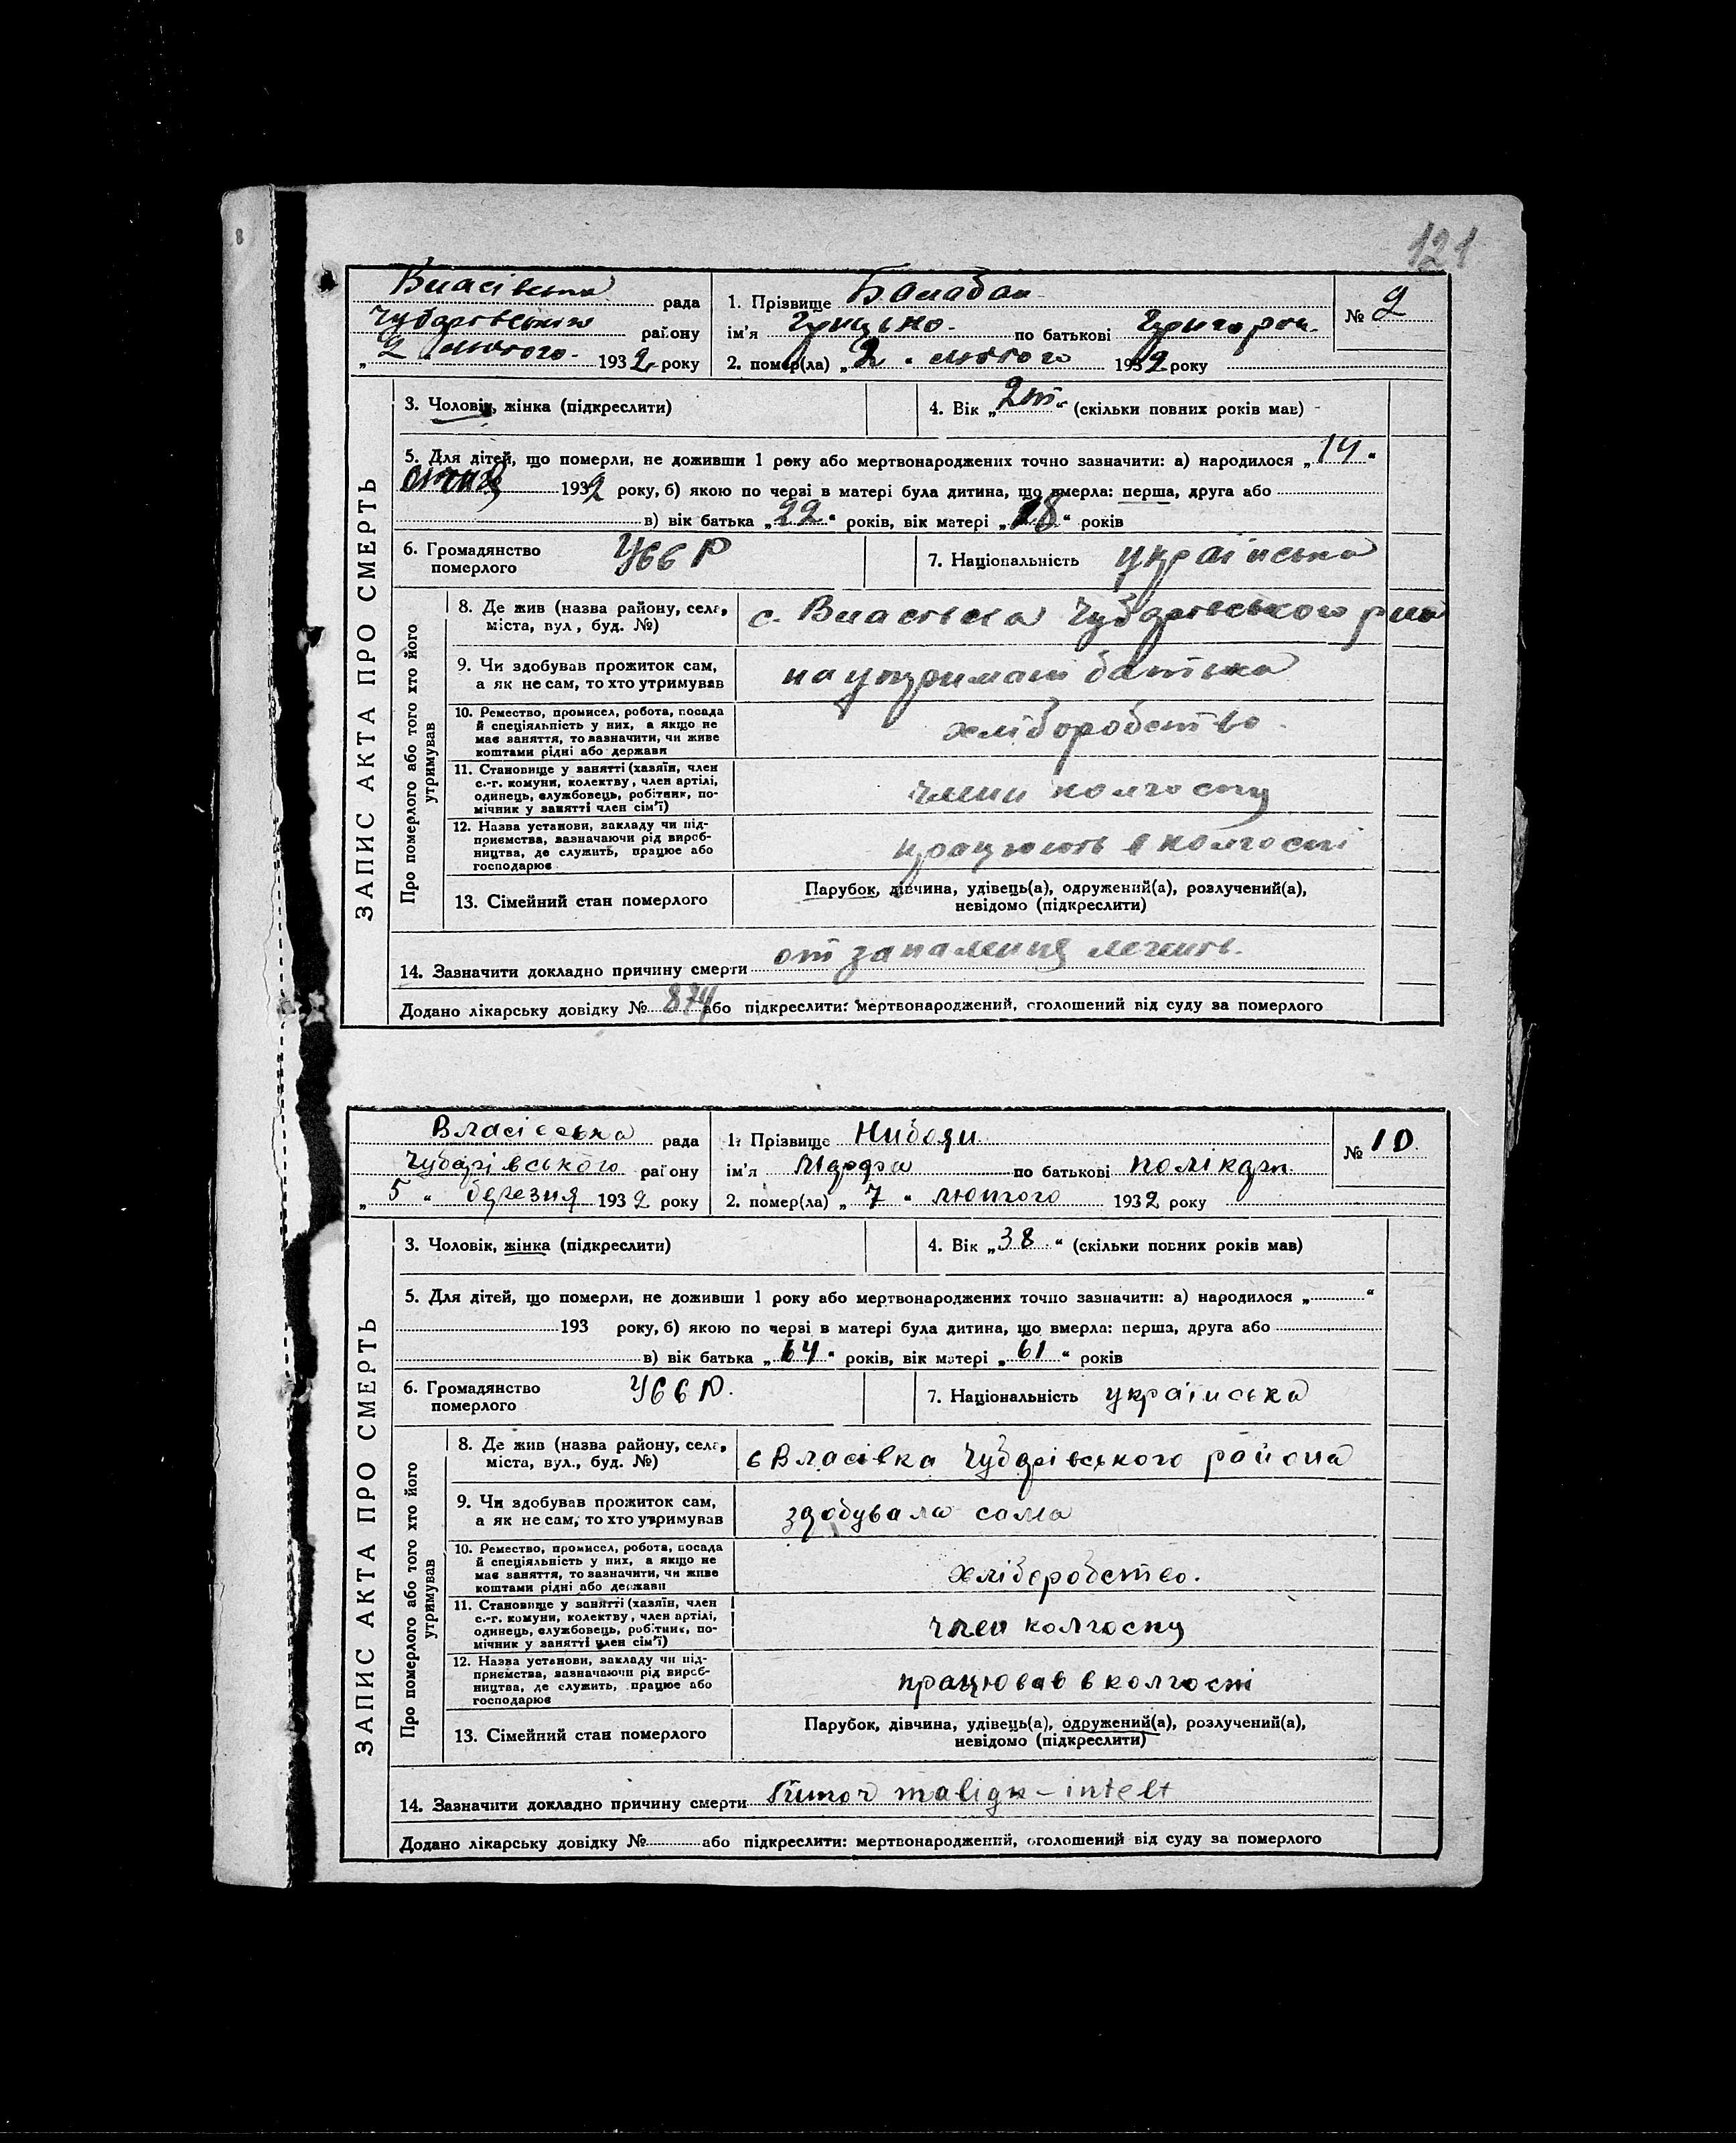 8
121
Власівська рада
Чубарівського району
„ 2 лютого 1932 року
1. Прізвище Балабан
ім'я Грицько. по батькові Григоров.
2. помер(ла) „ 2 " лютого 1932 року
№ 9
ЗАПИС АКТА ПРО СМЕРТЬ
3. Чоловік, жінка (підкреслити)
4. Вік „ 2 т. " (скільки повних років мав)
5. Для дітей, що померли, не доживши 1 року або мертвонароджених точно зазначити: а) народилося „ 14 "
січня 1932 року, б) якою по черзі в матері була дитина, що вмерла: перша, друга або
в) вік батька „ 22 " років, вік матері „ 18 " років
6. Громадянство померлого УССР
7. Національність українська
Про померлого або того хто його утримував
8. Де жив (назва району, села, міста, вул., буд. №)
с. Власівка Чубарівського р-на
9. Чи здобував прожиток сам, а як не сам, то хто утримував
на утриман батька
10. Ремество, промисел, робота, посада й спеціяльність у них, а якщо не має заняття, то зазначити, чи живе коштами рідні або держави
хліборобство
11. Становище у занятті (хазяїн, член с.-г. комуни, колектву, член артілі, одинець, службовець, робітник, помічник у занятті член сім'ї)
члени колгоспу
12. Назва установи, закладу чи підприємства, зазначаючи рід виробництва, де служить, працює або господарює
працюють в колгоспі
13. Сімейний стан померлого
Парубок, дівчина, удівець(а), одружений(а), розлучений(а), невідомо (підкреслити)
14. Зазначити докладно причину смерти от запалення легень.
Додано лікарську довідку № 874 або підкреслити: мертвонароджений, оголошений від суду за померлого
Власівська рада
Чубарівського району
„ 5 " березня 1932 року
1. Прізвище
ім'я Марфа по батькові Полікарп.
2. помер(ла) „ 7 " лютого 1932 року
№ 10.
ЗАПИС АКТА ПРО СМЕРТЬ
3. Чоловік, жінка (підкреслити)
4. Вік „ 38 " (скільки повних років мав)
5. Для дітей, що померли, не доживши 1 року або мертвонароджених точно зазначити: а) народилося „ "
193 року, б) якою по черзі в матері була дитина, що вмерла: перша, друга або
в) вік батька „ 64 " років, вік матері „ 61 " років
6. Громадянство померлого УССР.
7. Національність українська
Про померлого або того хто його утримував
8. Де жив (назва району, села, міста, вул., буд. №)
с Власівка Чубарівського района
9. Чи здобував прожиток сам, а як не сам, то хто утримував
здобувала сама
10. Ремество, промисел, робота, посада й спеціяльність у них, а якщо не має заняття, то зазначити, чи живе коштами рідні або держави
хліборобство.
11. Становище у занятті (хазяїн, член с.-г. комуни, колектву, член артілі, одинець, службовець, робітник, помічник у занятті член сім'ї)
член колгоспу
12. Назва установи, закладу чи підприємства, зазначаючи рід виробництва, де служить, працює або господарює
працював в колгоспі
13. Сімейний стан померлого
Парубок, дівчина, удівець(а), одружений(а), розлучений(а), невідомо (підкреслити)
14. Зазначити докладно причину смерти Tumor malign – intelt
Додано лікарську довідку № або підкреслити: мертвонароджений, оголошений від суду за померлого